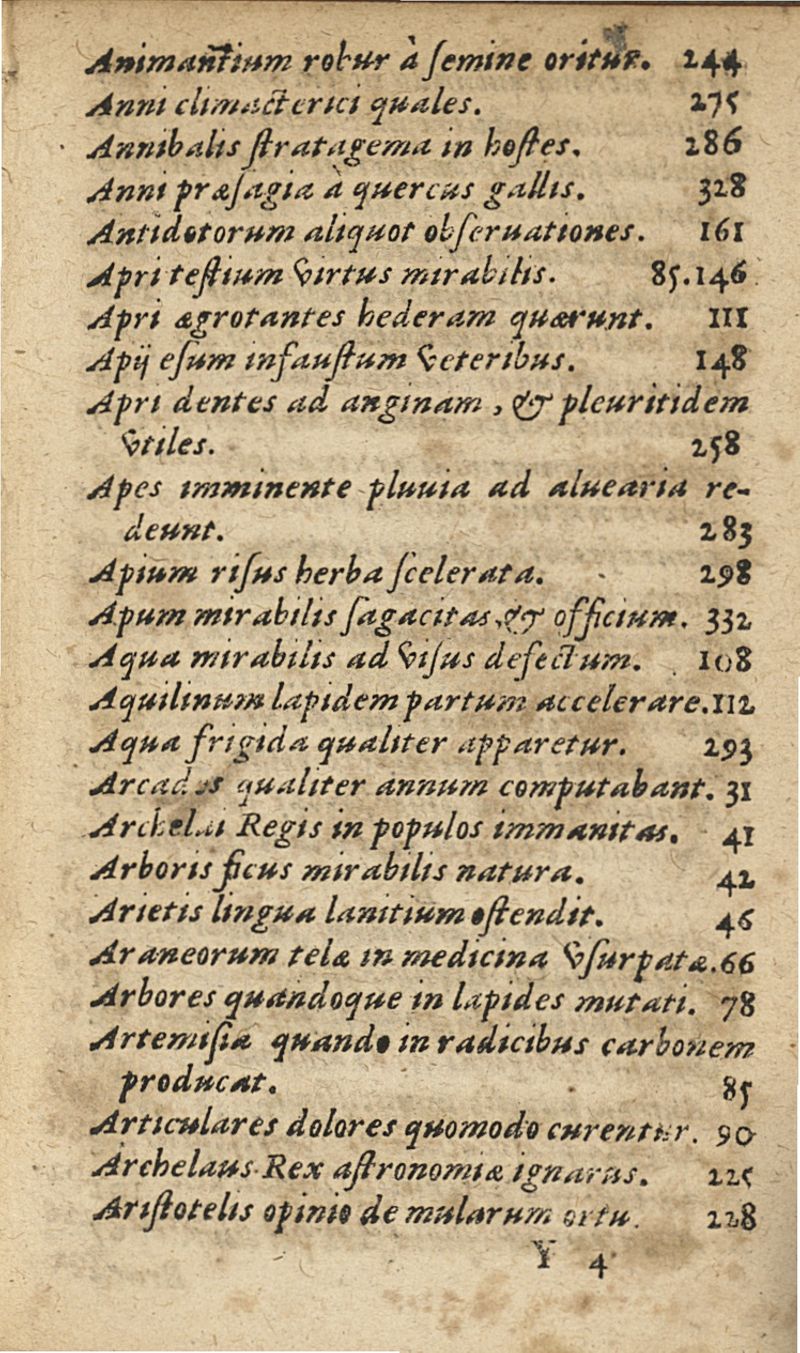 Animantium robur à ſemine oritur. 244
Anni climacterici quales. 275
Annibalis ſtratagema in hoſtes. 286
Anni præſagia à quercus gallis. 328
Antidotorum aliquot obſeruationes. 161
Apri teſtium virtus mirabilis. 85.146
Apri ægrotantes hederam quærunt. 111
Apij eſum infauſtum veteribus. 148
Apri dentes ad anginam, & pleuritidem
vtiles. 258
Apes imminente pluuia ad aluearia re-
deunt. 283
Apium riſus herba ſcelerata. 298
Apum mirabilis ſagacitas, & officium. 332
Aqua mirabilis ad viſus defectum. 108
Aquilinum lapidem partum accelerare. 112
Aqua frigida qualiter apparetur. 293
Arcades qualiter annum computabant. 31
Archelai Regis in populos immanitas. 41
Arboris ficus mirabilis natura. 42
Arietis lingua lanitium oſtendit. 46
Araneorum telæ in medicina vſurpatæ. 66
Arbores quandoque in lapides mutati. 78
Artemiſia quando in radicibus carbonem
producat. 85
Articulares dolores quomodo curentur. 90
Archelaus Rex aſtronomiæ ignarus. 225
Ariſtotelis opinio de mularum ortu. 228
Y 4